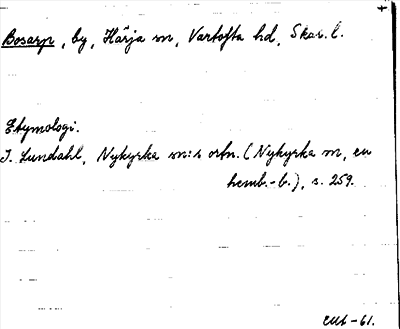 Bosarp, by, Härja sn, Vartofta hd, Skar. l.
Etymologi.
I. Lundahl, Nykyrka sn:s ortn. (Nykyrka sn, en
hemb.-b.), s. 259.
-61.